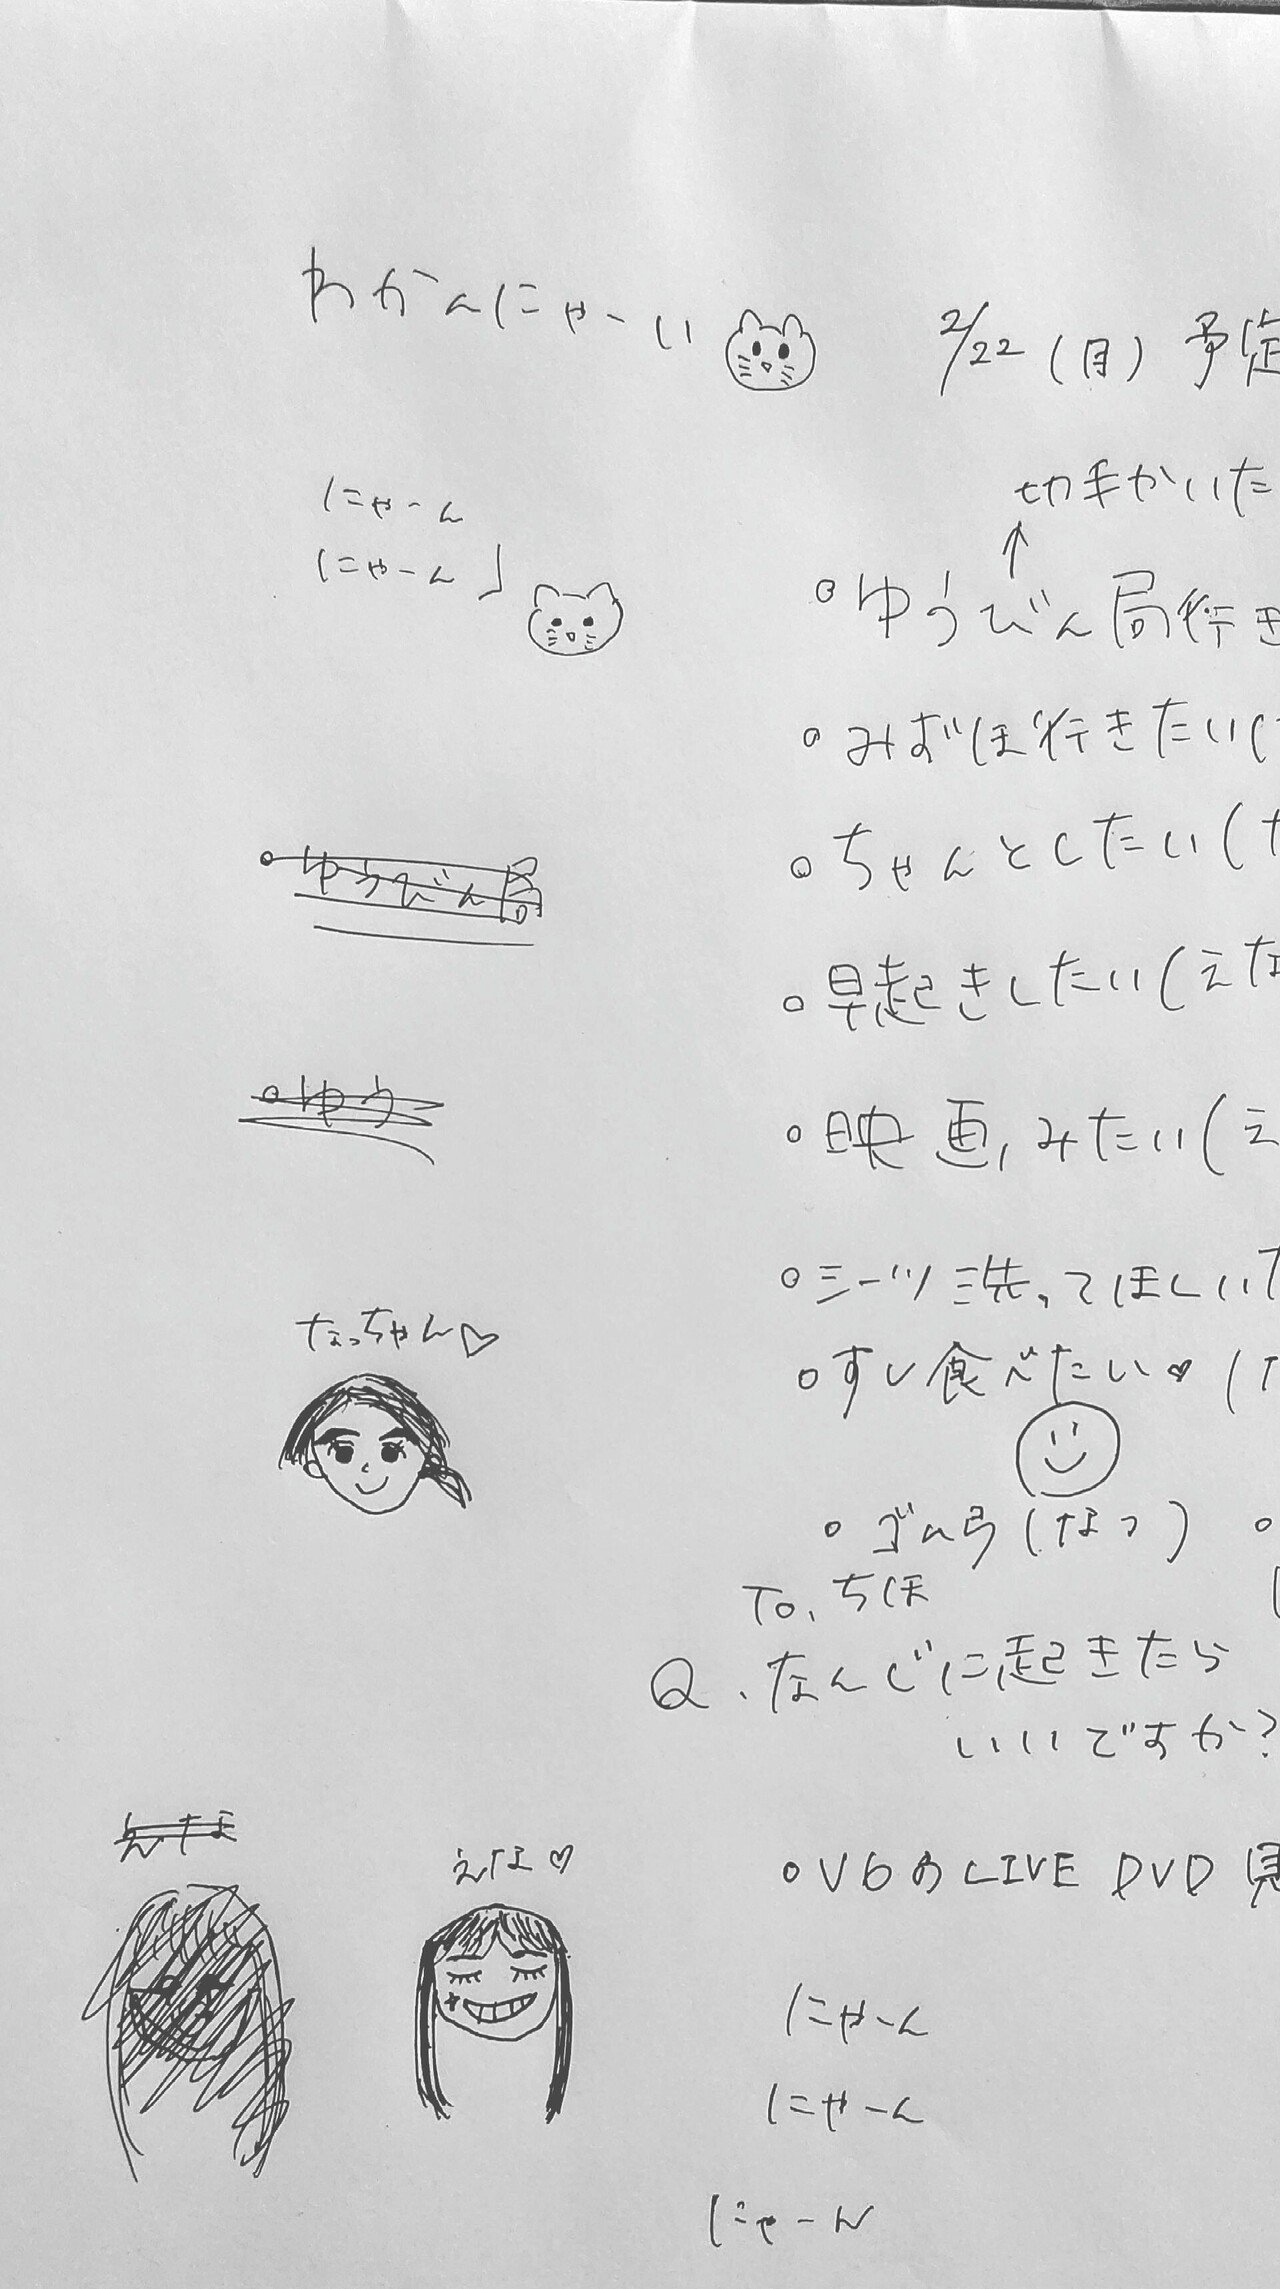 わかんにゃーい
2/22(月)予定
にゃーん
にゃーん♩
切手かいた
↑
○ゆうびん局行き
○みずほ行きたい(
○ちゃんとしたい(
○ゆうびん局
○早起きしたい(えな
○ゆう
○映画みたい(え
○シーツ洗ってほしい
なっちゃん♡
○すし食べたい♥(
○ゴム弓(なつ)
To.ちほ
Q.なんじに起きたら
いいですか?
えな
えな♡
○V6のLIVE DVD見
にゃーん
にゃーん
にゃーん